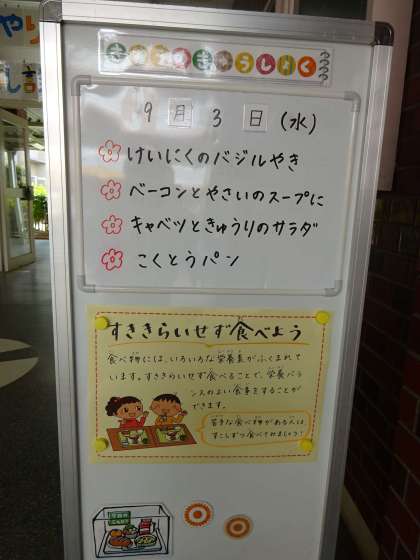 やり
し言
きょうのきゅうしょく
9月3日(水)
けいにくのバジルやき
ベーコンとやさいのスープに
キャベツときゅうりのサラダ
こくとうパン
すききらいせず食べよう
食べ物には、いろいろな栄養素がふくまれて
います。すききらいせず食べることで、栄養バラ
ンスのよい食事をすることが
できます。
苦手な食べ物がある人は、
すこしずつ食べてみましょう!